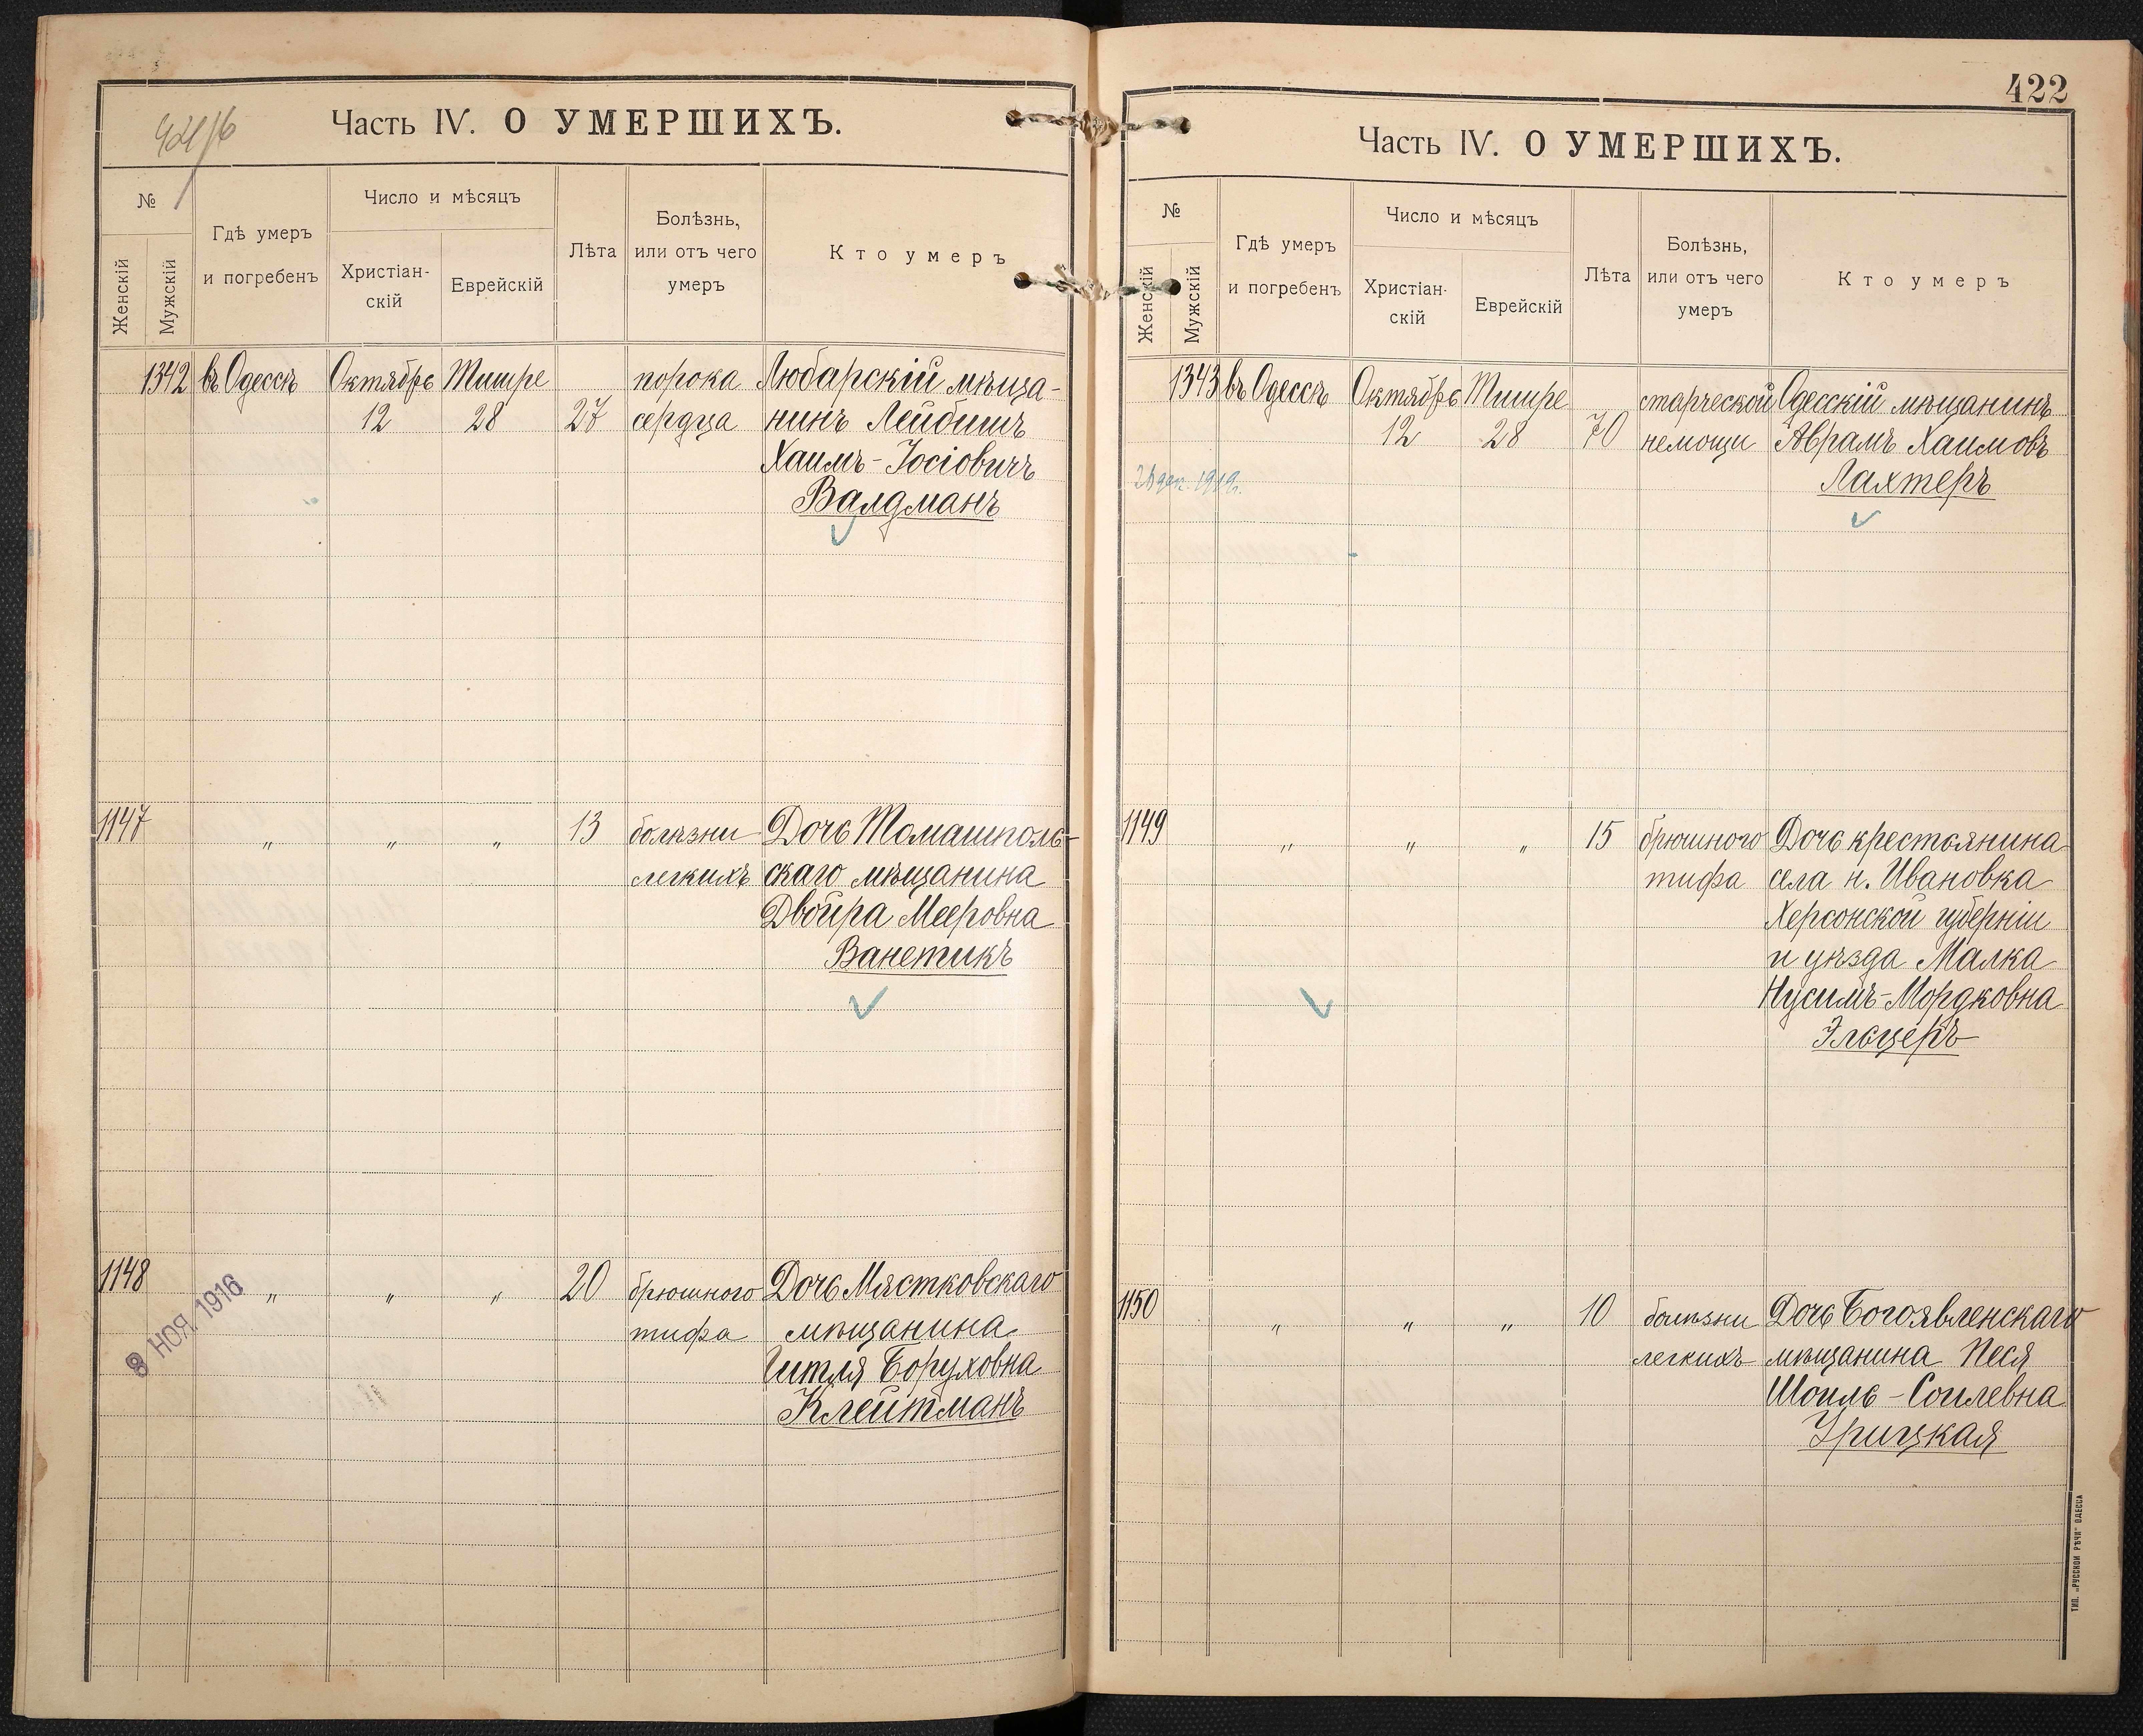 Часть IV. О УМЕРШИХЪ.
№
Женскій
Мужскій
Гдѣ умеръ
и погребенъ
Число и мѣсяцъ
Христіан-
скій
Еврейскій
Лѣта
Болѣзнь,
или отъ чего
умеръ
Кто умеръ
1342 въ Одессѣ Октябрь Тишре порока Любарскій мѣща-
12 28 27 сердца нинъ Лейбишъ
Хаимъ-Іосіовичъ
Валдманъ
1147 " " " 13 болѣзни Дочь Томашполь-
легкихъ скаго мѣщанина
Двойра Мееровна
Ванетикъ
1148 " " " 20 брюшного Дочь Мястковскаго
тифа мѣщанина
Гитля Боруховна
Клейтманъ
8 НОЯ. 1916
422
Часть IV. О УМЕРШИХЪ.
№
Женскій
Мужскій
Гдѣ умеръ
и погребенъ
Число и мѣсяцъ
Христіан-
скій
Еврейскій
Лѣта
Болѣзнь,
или отъ чего
умеръ
Кто умеръ
1343 въ Одессѣ Октябрь Тишре старческой Одесскій мѣщанинъ
12 28 70 немощи Аврамъ Хаимовъ
Лахтеръ
1149 " " " 15 брюшного Дочь крестьянина
тифа села н. Ивановка
Херсонской губерніи
и уѣзда Малка
Нусимъ-Мордковна
Эльцеръ
1150 " " " 10 болѣзни Дочь Богоявленскаго
легкихъ мѣщанина Песя
Шоиль-Соилевна
Урицкая
ТИП. „РУССКОЙ РѢЧИ" ОДЕССА